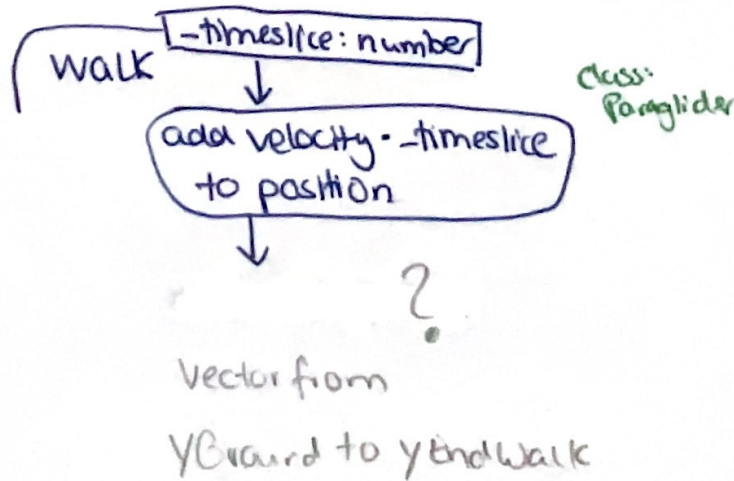 _timeslice: number
walk
class:
Paraglider
add velocity · _timeslice
to position
?
vector from
yGround to yEndWalk